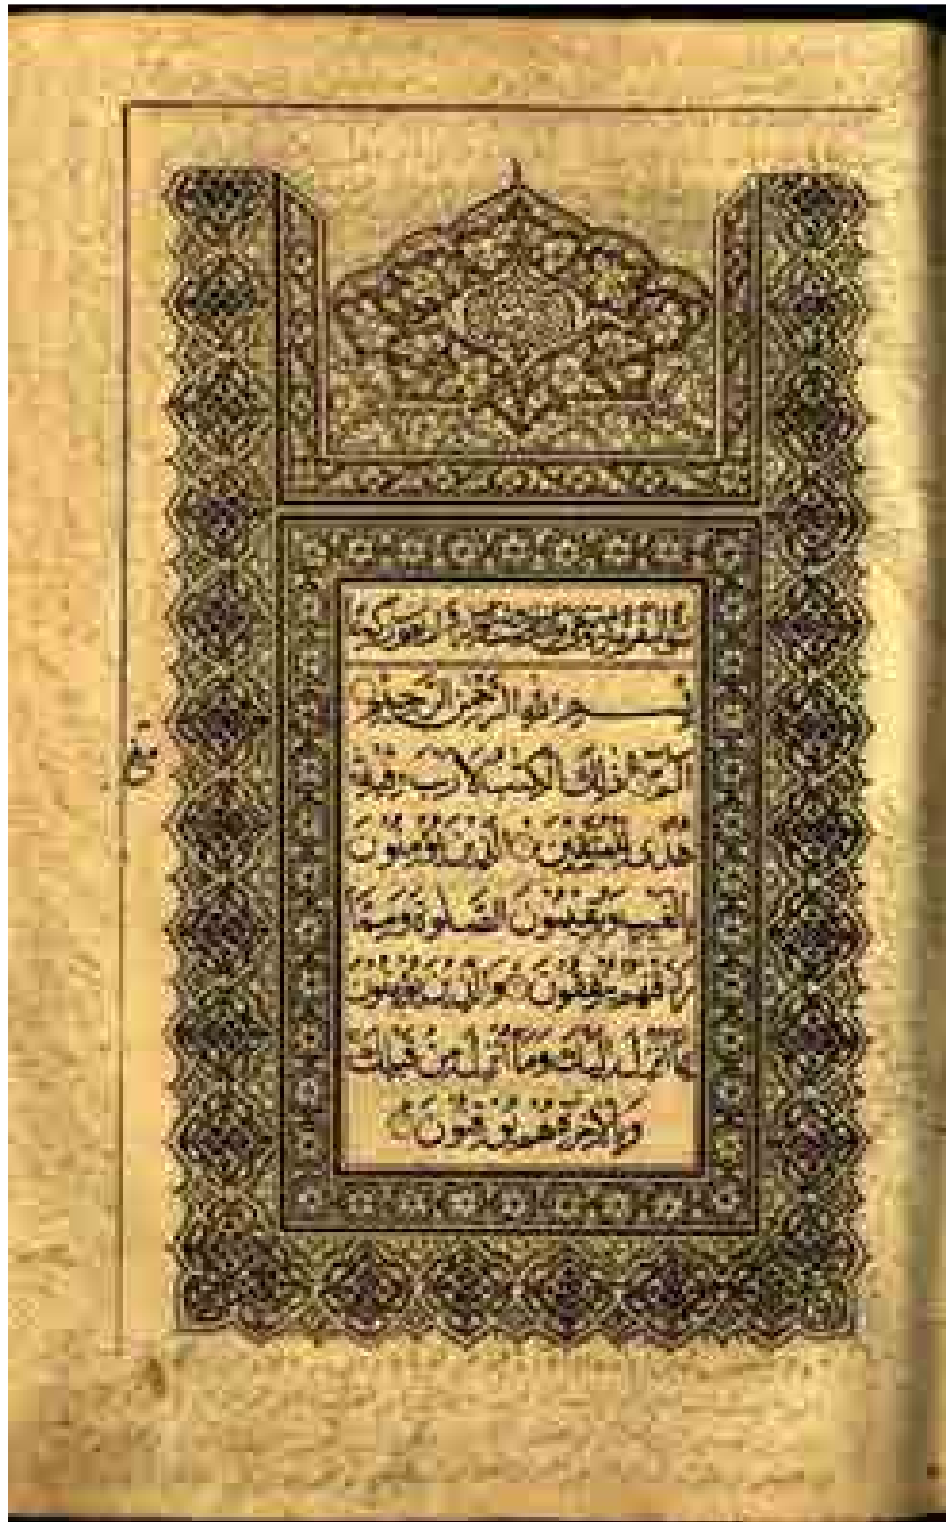 بسم الله الرحمن الرحيم
الٓمٓ ذلك الكتب لا ريب فيه
هدى للمتقين الذين يؤمنون
بالغيب ويقيمون الصلوة ومما
رزقنهم ينفقون والذين يؤمنون
بما أنزل إليك وما أنزل من قبلك
وبالآخرة هم يوقنون